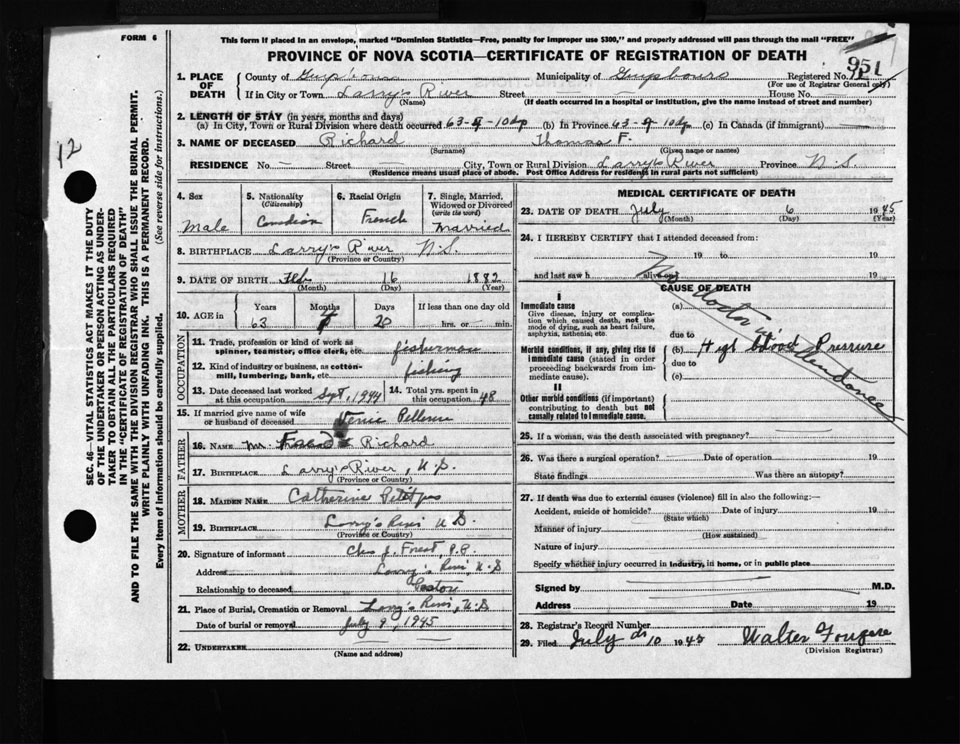 FORM 6
This form if placed in an envelope, marked "Dominion Statistics—Free, penalty for improper use $300," and properly addressed will pass through the mail "FREE"
PROVINCE OF NOVA SCOTIA—CERTIFICATE OF REGISTRATION OF DEATH
951
12
SEC. 46—VITAL STATISTICS ACT MAKES IT THE DUTY
OF THE UNDERTAKER OR PERSON ACTING AS UNDER-
TAKER TO OBTAIN ALL THE PARTICULARS REQUIRED
IN THE "CERTIFICATE OF REGISTRATION OF DEATH"
AND TO FILE THE SAME WITH THE DIVISION REGISTRAR WHO SHALL ISSUE THE BURIAL PERMIT.
WRITE PLAINLY WITH UNFADING INK. THIS IS A PERMANENT RECORD.
Every item of Information should be carefully supplied. (See reverse side for Instructions.)
1. PLACE OF DEATH
County of Municipality of Guysboro Registered No.
(For use of Registrar General only)
If in City or Town Larry's River Street House No.
(Name) (If death occurred in a hospital or institution, give the name instead of street and number)
2. LENGTH OF STAY (in years, months and days)
(a) In City, Town or Rural Division where death occurred 63- -10 (b) In Province 63- -10 (c) In Canada (if immigrant)
3. NAME OF DECEASED Richard Thomas F.
(Surname) (Given name or names)
RESIDENCE No. Street City, Town or Rural Division Larry's River Province N.S.
(Residence means usual place of abode. Post Office Address for residents in rural parts not sufficient)
4. Sex
Male
5. Nationality
(Citizenship)
Canadian
6. Racial Origin
French
7. Single, Married,
Widowed or Divorced
(write the word)
Married
8. BIRTHPLACE Larry's River N.S.
(Province or Country)
9. DATE OF BIRTH Feb 16 1882
(Month) (Day) (Year)
10. AGE in
Years Months Days If less than one day old
63 20 hrs. or min.
OCCUPATION
11. Trade, profession or kind of work as
spinner, teamster, office clerk, etc. fisherman
12. Kind of industry or business, as cotton-
mill, lumbering, bank, etc. fishing
13. Date deceased last worked
at this occupation Sept, 1944
14. Total yrs. spent in
this occupation 48
15. If married give name of wife
or husband of deceased Pellerin
FATHER
16. NAME Mr. Richard
17. BIRTHPLACE Larry's River, N.S.
(Province or Country)
MOTHER
18. MAIDEN NAME Catherine
19. BIRTHPLACE Larry's River N.S.
(Province or Country)
20. Signature of informant Chas J. Forest, P.P.
Address Larry's River, N.S
Relationship to deceased Pastor
21. Place of Burial, Cremation or Removal Larry's River, N.S
Date of burial or removal July 9, 1945
22. UNDERTAKER
(Name and address)
MEDICAL CERTIFICATE OF DEATH
23. DATE OF DEATH July 6 1945
(Month) (Day) (Year)
24. I HEREBY CERTIFY that I attended deceased from:
19 to 19
and last saw h alive on 19
CAUSE OF DEATH
No doctor in attendance
I
Immediate cause
Give disease, injury or complica-
tion which caused death, not the
mode of dying, such as heart failure,
asphyxia, asthenia, etc.
(a)
due to
Morbid conditions, if any, giving rise to
immediate cause (stated in order
proceeding backwards from im-
mediate cause).
(b) High blood Pressure
due to
(c)
II
Other morbid conditions (if important)
contributing to death but not
causally related to immediate cause.
25. If a woman, was the death associated with pregnancy?
26. Was there a surgical operation? Date of operation 19
State findings Was there an autopsy?
27. If death was due to external causes (violence) fill in also the following:—
Accident, suicide or homicide? Date of injury 19
(State which)
Manner of injury
(How sustained)
Nature of injury
Specify whether injury occurred in industry, in home, or in public place
Signed by M.D.
Address Date 19
28. Registrar's Record Number
29. Filed July 10 1945 Walter Fougere
(Division Registrar)